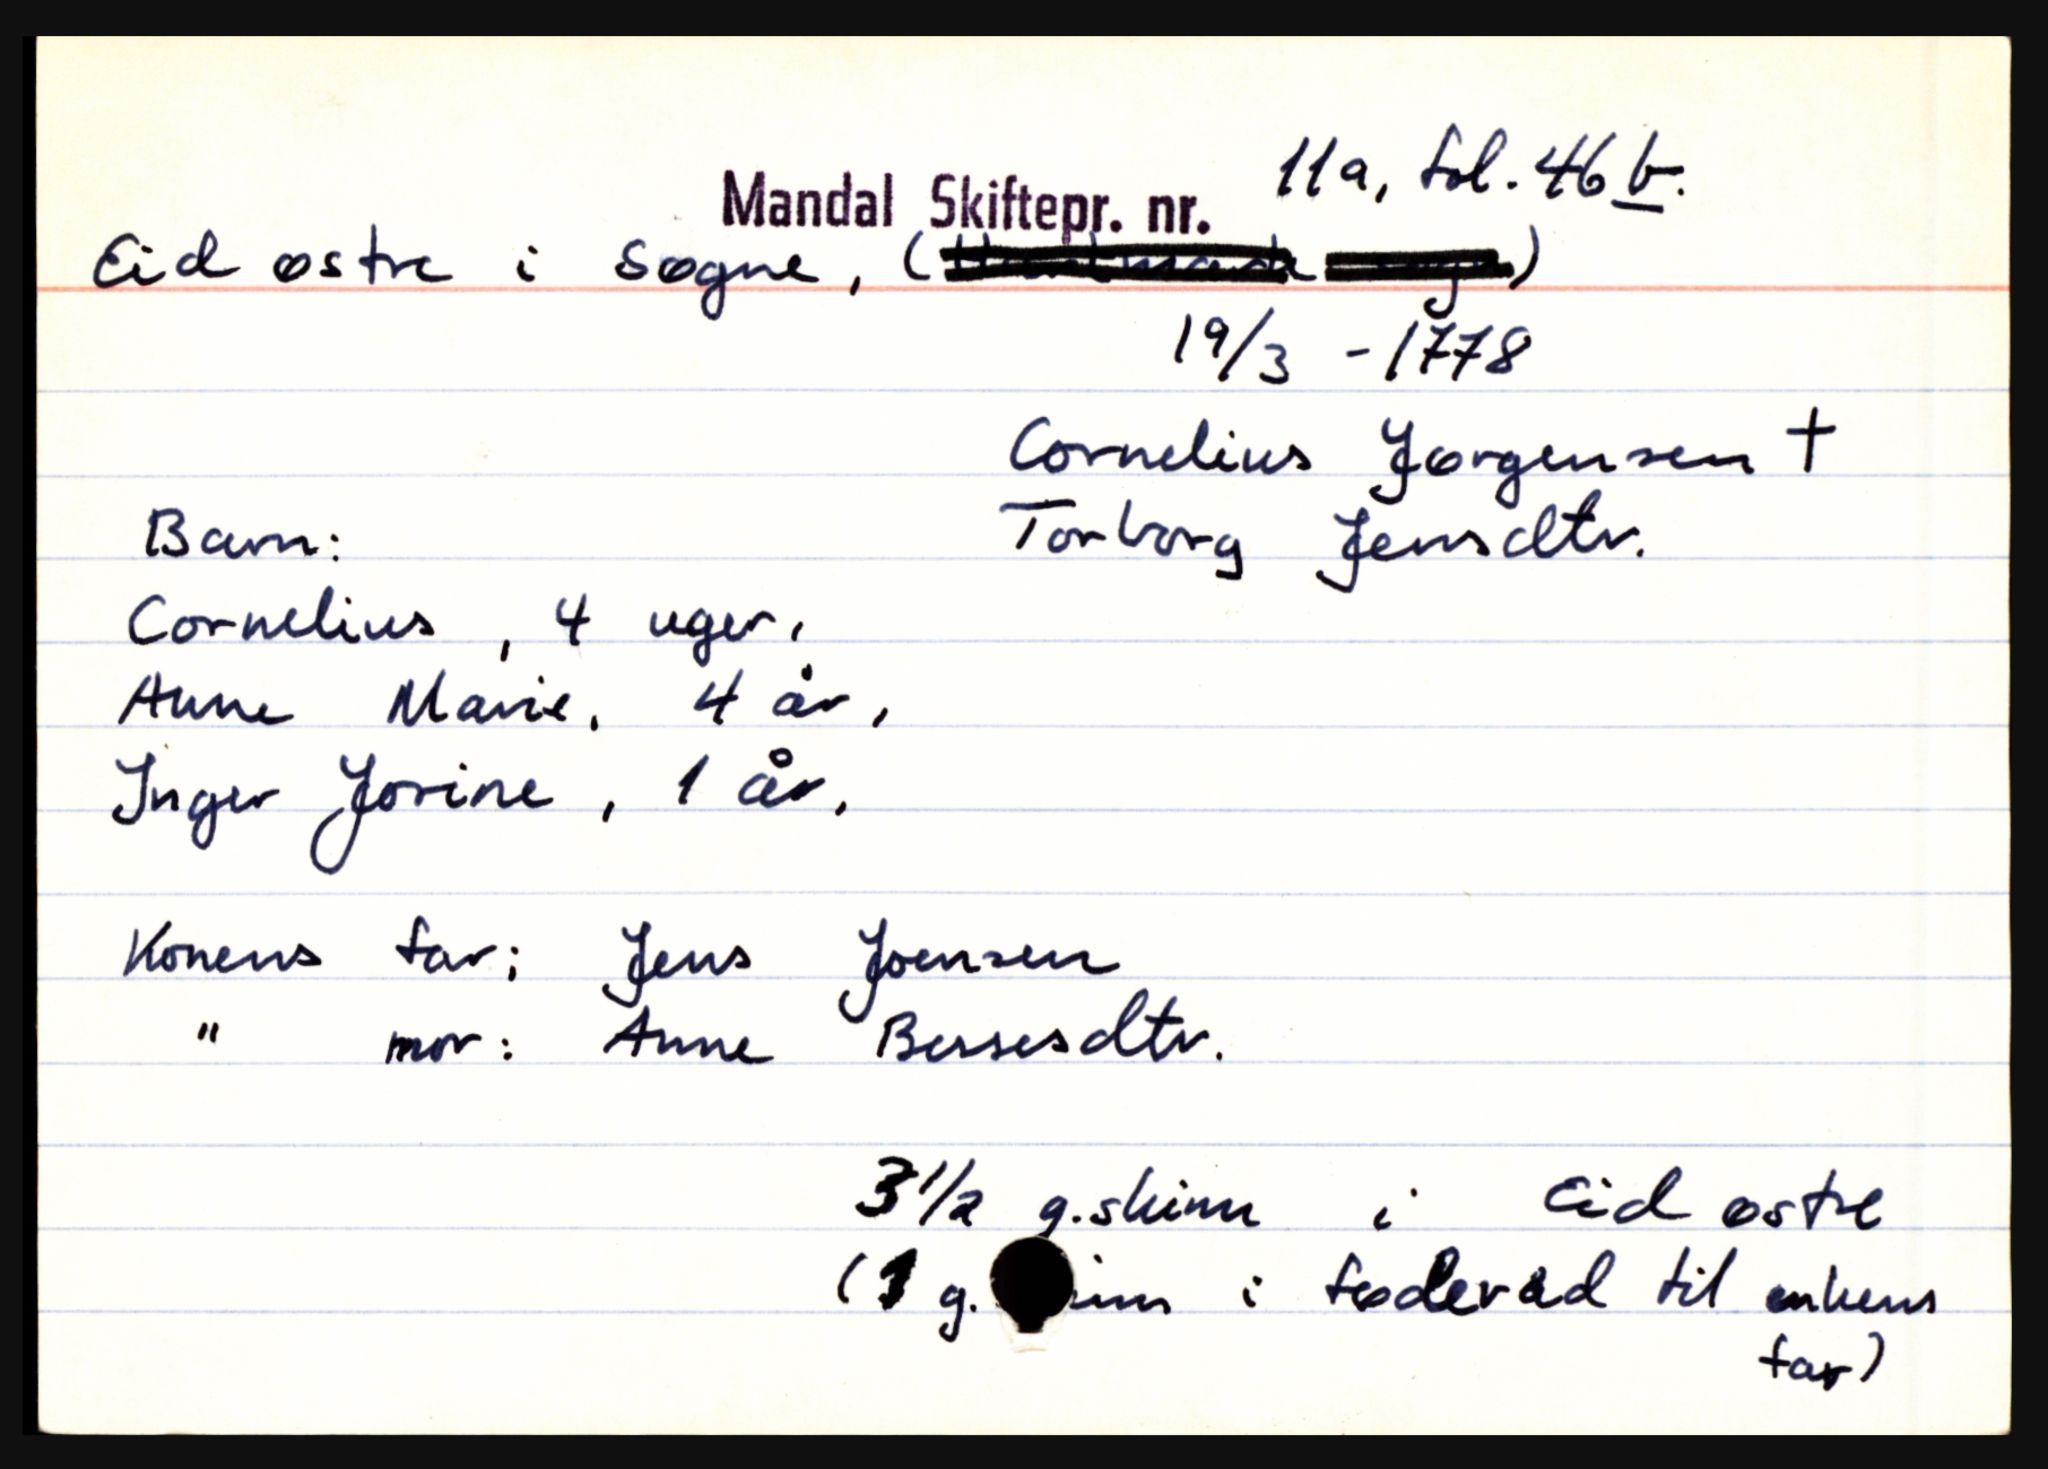 Mandal Skiftepr. nr. 11a, fol. 46 b.
Eid østre i Søgne, ( )
19/3 - 1778
Cornelius Jørgensen †
Torborg Jensdtr.
Barn:
Cornelius, 4 uger,
Anne Marie, 4 år,
Inger Jorine, 1 år,
Konens far; Jens Joensen
" mor: Anne Bessesdtr.
3 1/2 g.skinn i Eid østre
(1 g. inn i føderåd til enkens
far)